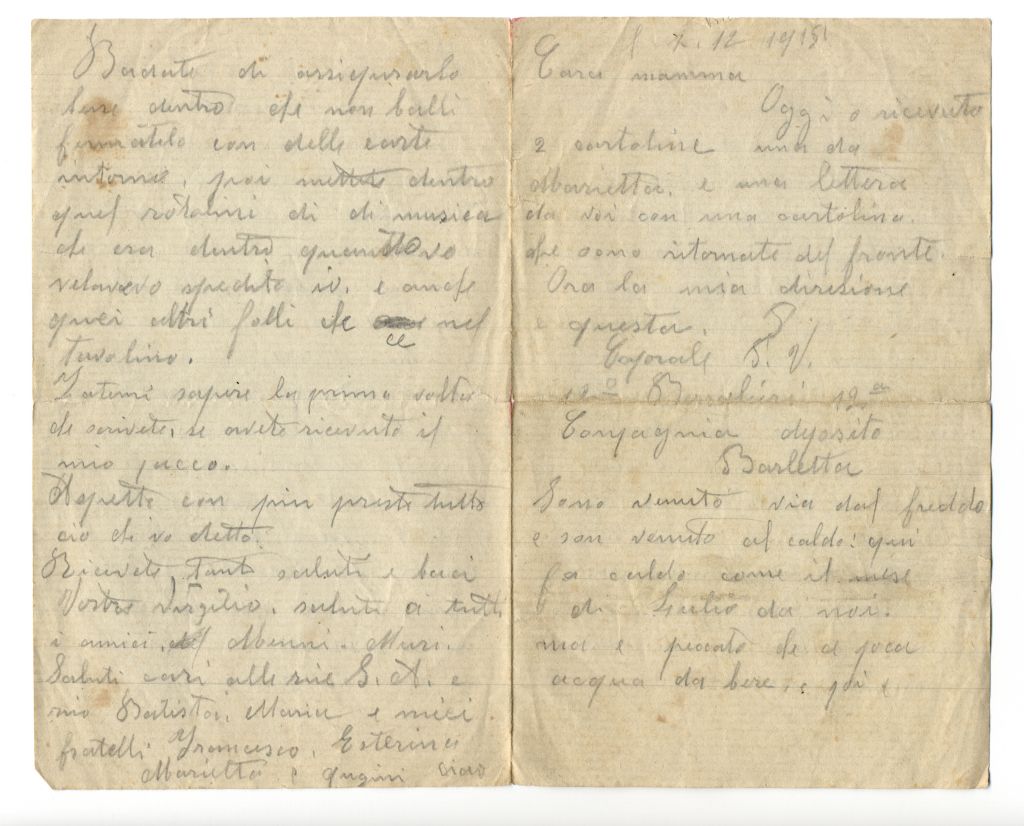 7. 12 1915
Cara mamma
Oggi o ricevuto
2 cartoline una da
Marietta. e una lettera
da voi con una cartolina.
che sono ritornate del fronte.
Ora la mia diresione
e questa.
Caporale S. V.
12º Bersalieri 12a
Conpagnia deposito
Barletta
Sono venuto via dal freddo
e son venuto al caldo: qui
fa caldo come il mese
di Gulio da noi.
ma e pecato che a poca
acqua da bere, e poi e
Badate di assiqurarlo
bene dentro che non balli
fermatelo con delle carte
intorno, poi mettete dentro
quel rotolini di di musica
che era dentro quando vo
velavevo spedito io. e anche
quei altri folli che ce nel
tavolino.
Fatemi sapere la prima volta
che scrivete, se avete ricevuto il
mio pacco.
Aspetto con piu presto tutto
cio che vo detto.
Ricevete tanti saluti e baci
Vostro Virgilio. saluti a tutti
i amici, del Menni. Muri.
Saluti cari alle sie G. A. e
sio Batista, Maria e miei
fratelli Francesco, Esterina
Marietta e qugini ciao